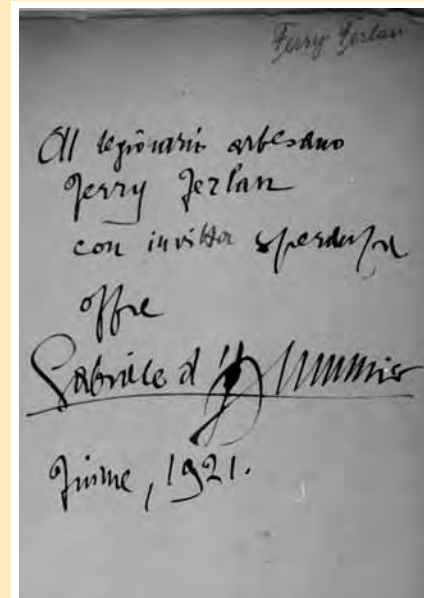 Ferry Ferlan
Al legionario arbesano
Ferry Ferlan
con invitta speranza
offre
Gabriele d'Annunzio
Fiume, 1921.